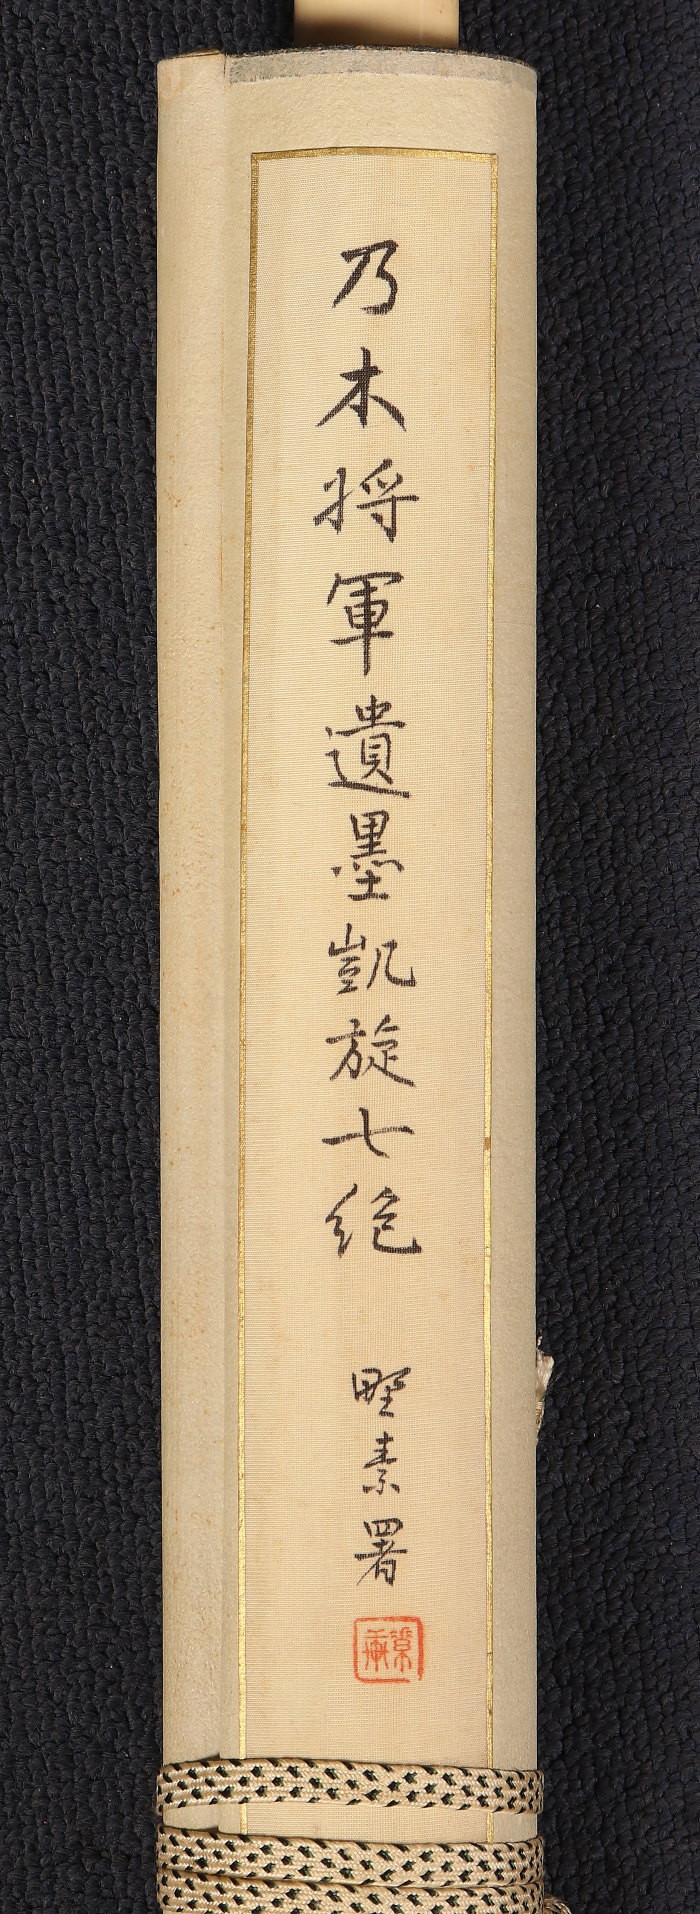 乃木将軍遺墨凱旋七絶
野素署